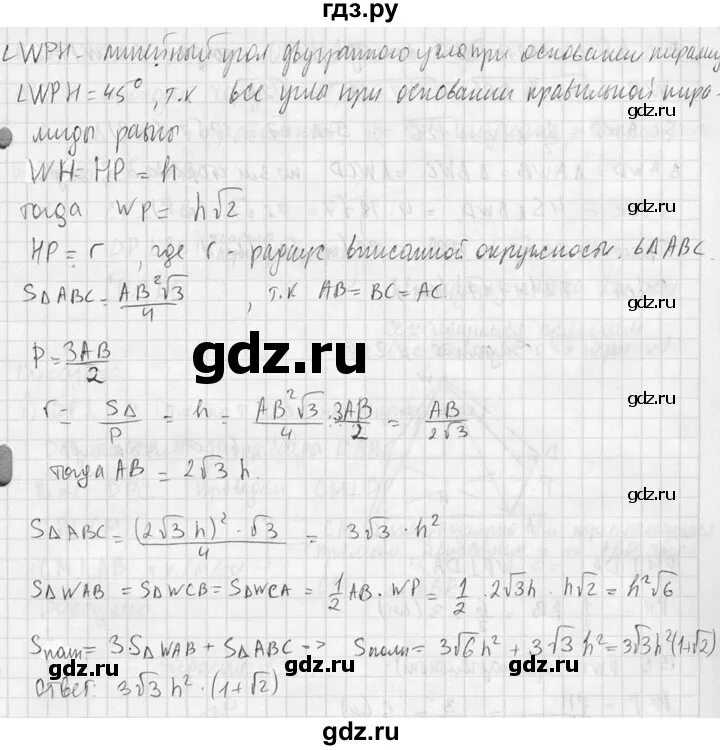 гдз.ру
∠WPH - линейный угол двугранного угла при основании пирами
∠WPH = 45°, т.к все угла при основании правильной пира-
миды равны
gdz.ru
WH = HP = h
gdz.ru
тогда WP = h√2
HP = r, где r - радиус вписанной окружности. в △ABC.
gdz.ru
S△ABC = AB²√3/4, т.к AB = BC = AC
gdz.ru
p = 3AB/2
gdz.ru
r = S△/p = h = AB²√3/4 : 3AB/2 = AB/2√3
gdz.ru
тогда AB = 2√3 h.
gdz.ru
S△ABC = (2√3 h)² · √3/4 = 3√3 · h²
S△WAB = S△WCB = S△WCA = 1/2 AB · WP = 1/2 · 2√3h · h√2 = h²√6
Sполн = 3·S△WAB + S△ABC => Sполн = 3√6 h² + 3√3 h² = 3√3h²(1+√2)
gdz.ru
gdz.ru
Ответ: 3√3 h² · (1+√2)
gdz.ru